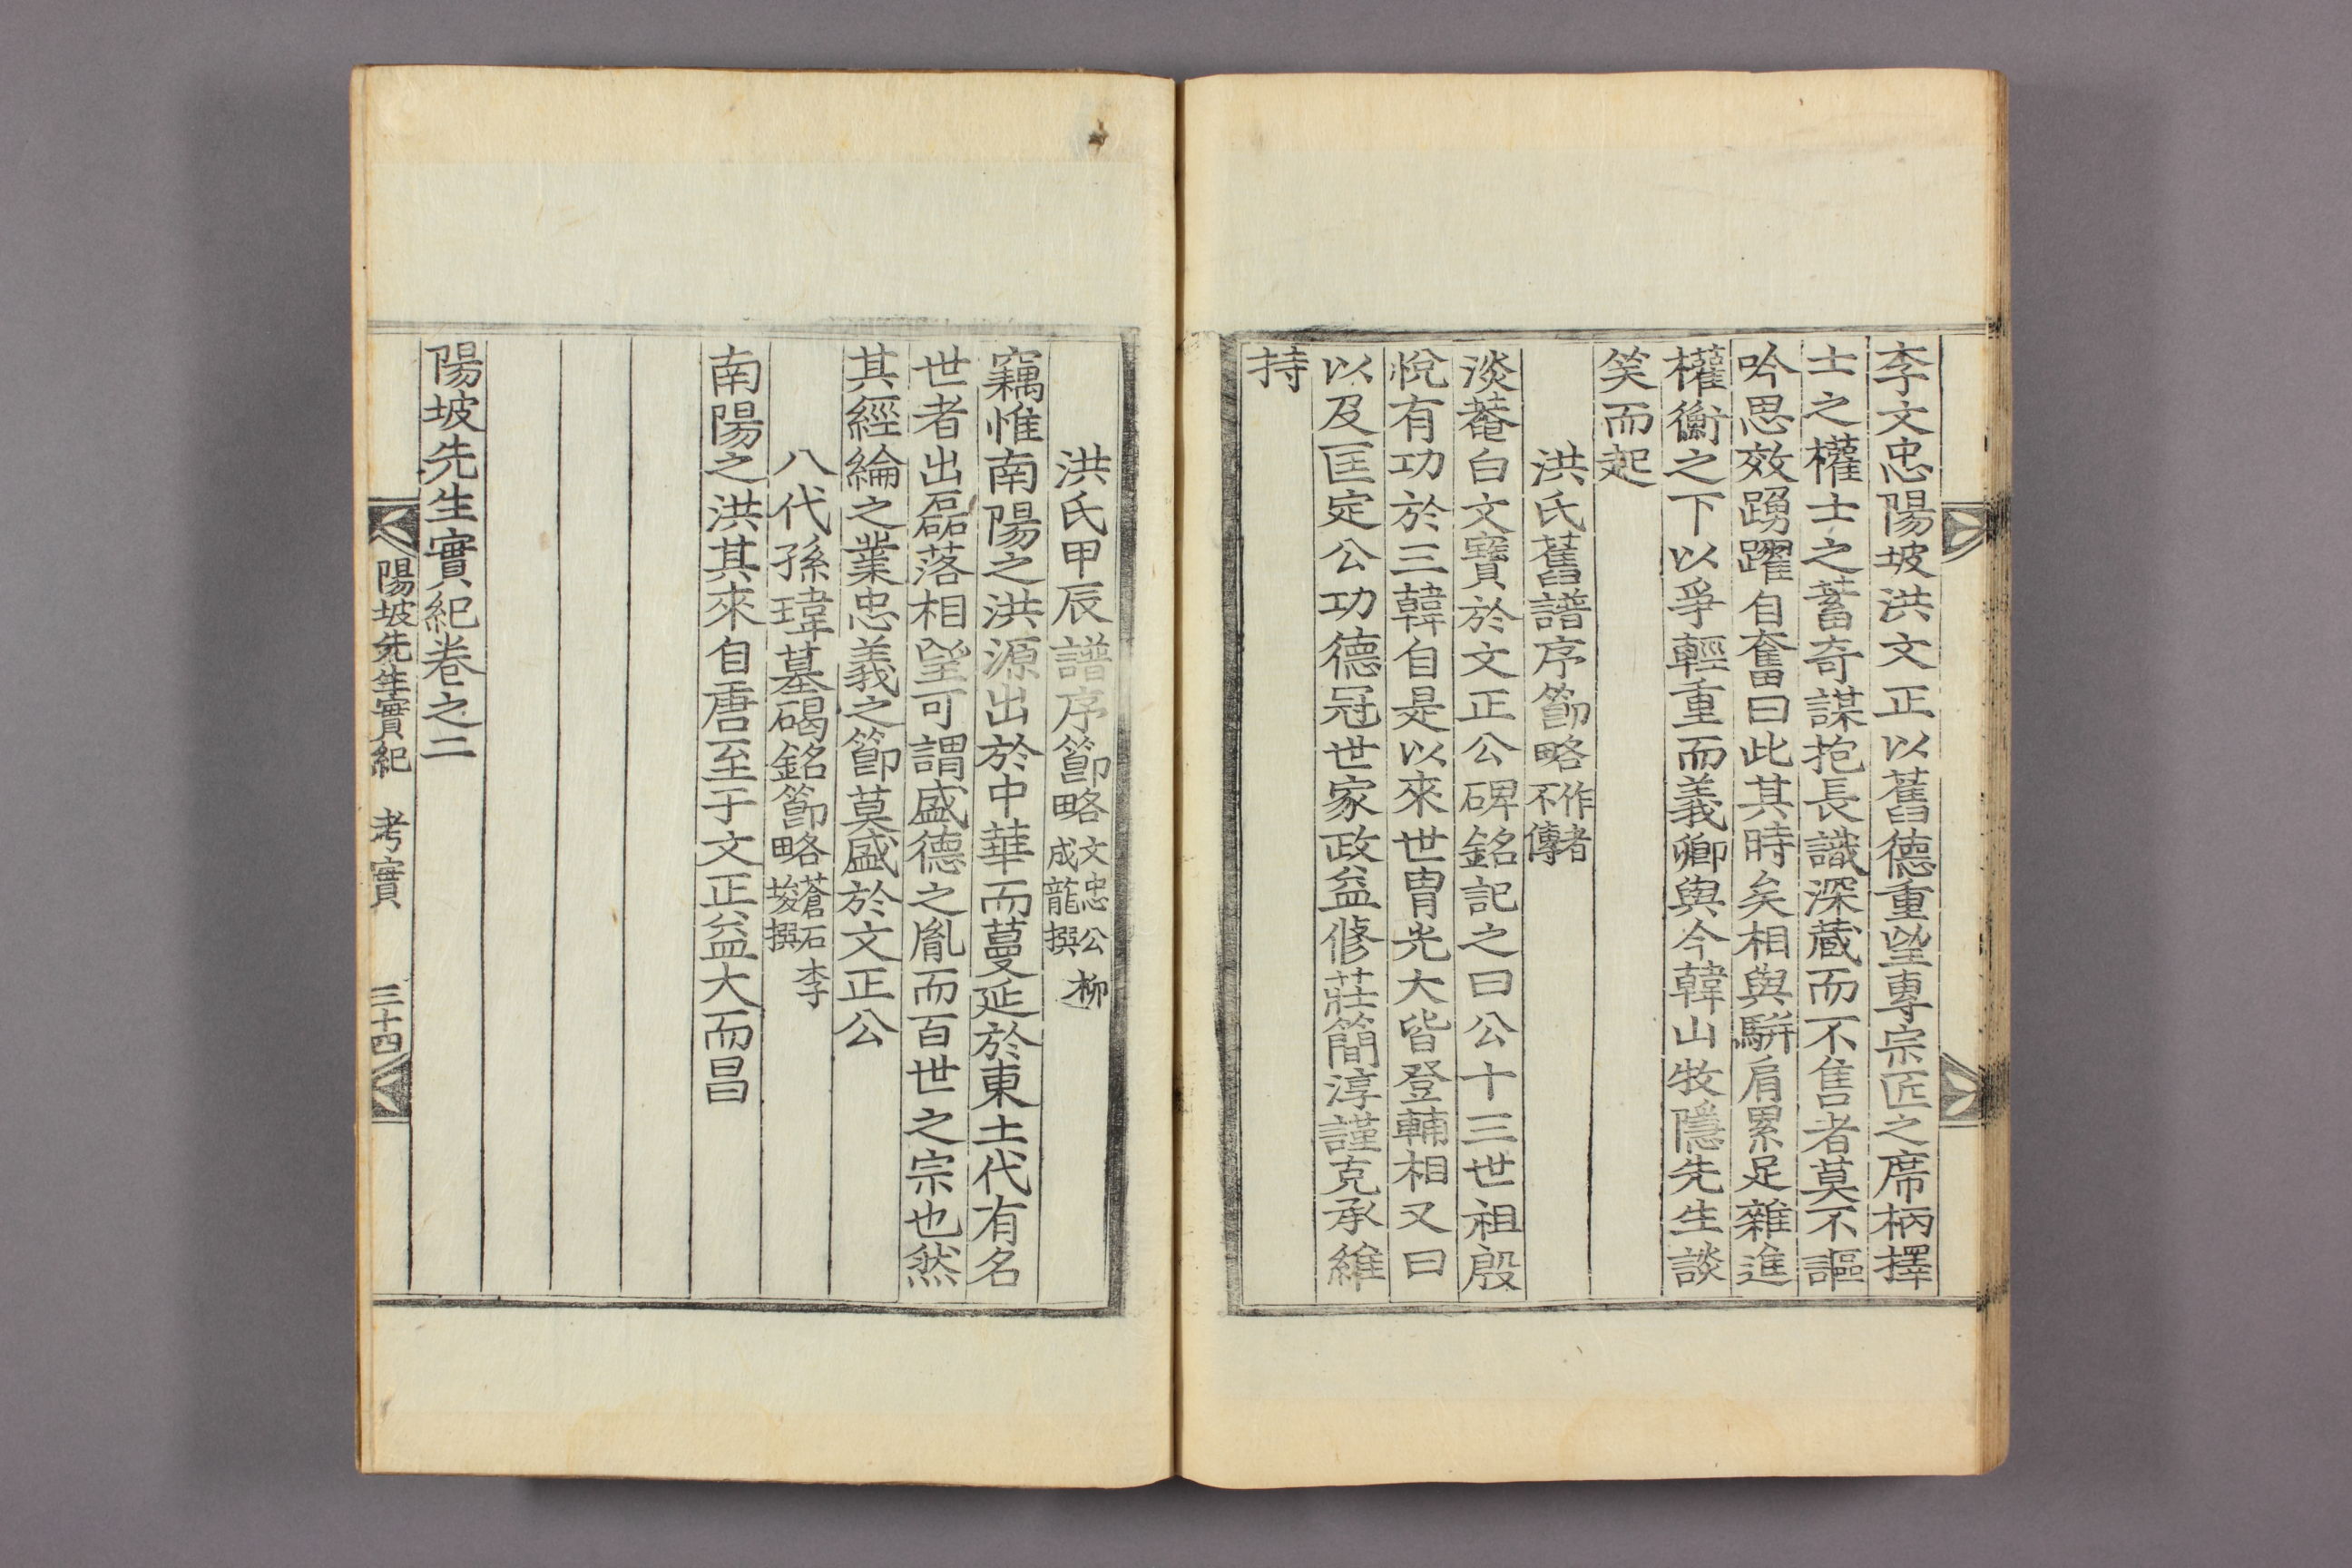 李文忠陽坡洪文正以舊德重望專宗匠之席柄擇
士之權士之蓄奇謀抱長識深蔵而不售者莫不謳
吟思效踴躍自奮曰此其時矣相與騈肩累足雜進
權衡之下以爭輕重而義卿與今韓山牧隱先生談
笑而起
洪氏舊譜序節略 作者不傳
淡菴白文寶於文正公碑銘記之曰公十三世祖殷
悅有功於三韓自是以來世胄光大皆登輔相又曰
以及匡定公功德冠世家政益修莊簡淳謹克承維
持
洪氏甲辰譜序節略 文忠公柳成龍撰
竊惟南陽之洪源出於中華而蔓延於東土代有名
世者出磊落相望可謂盛德之胤而百世之宗也然
其經綸之業忠義之節莫盛於文正公
八代孫瑋墓碣銘節略 蒼石李埈撰
南陽之洪其來自唐至于文正益大而昌
陽坡先生實紀卷之二
陽坡先生實紀 考實 三十四